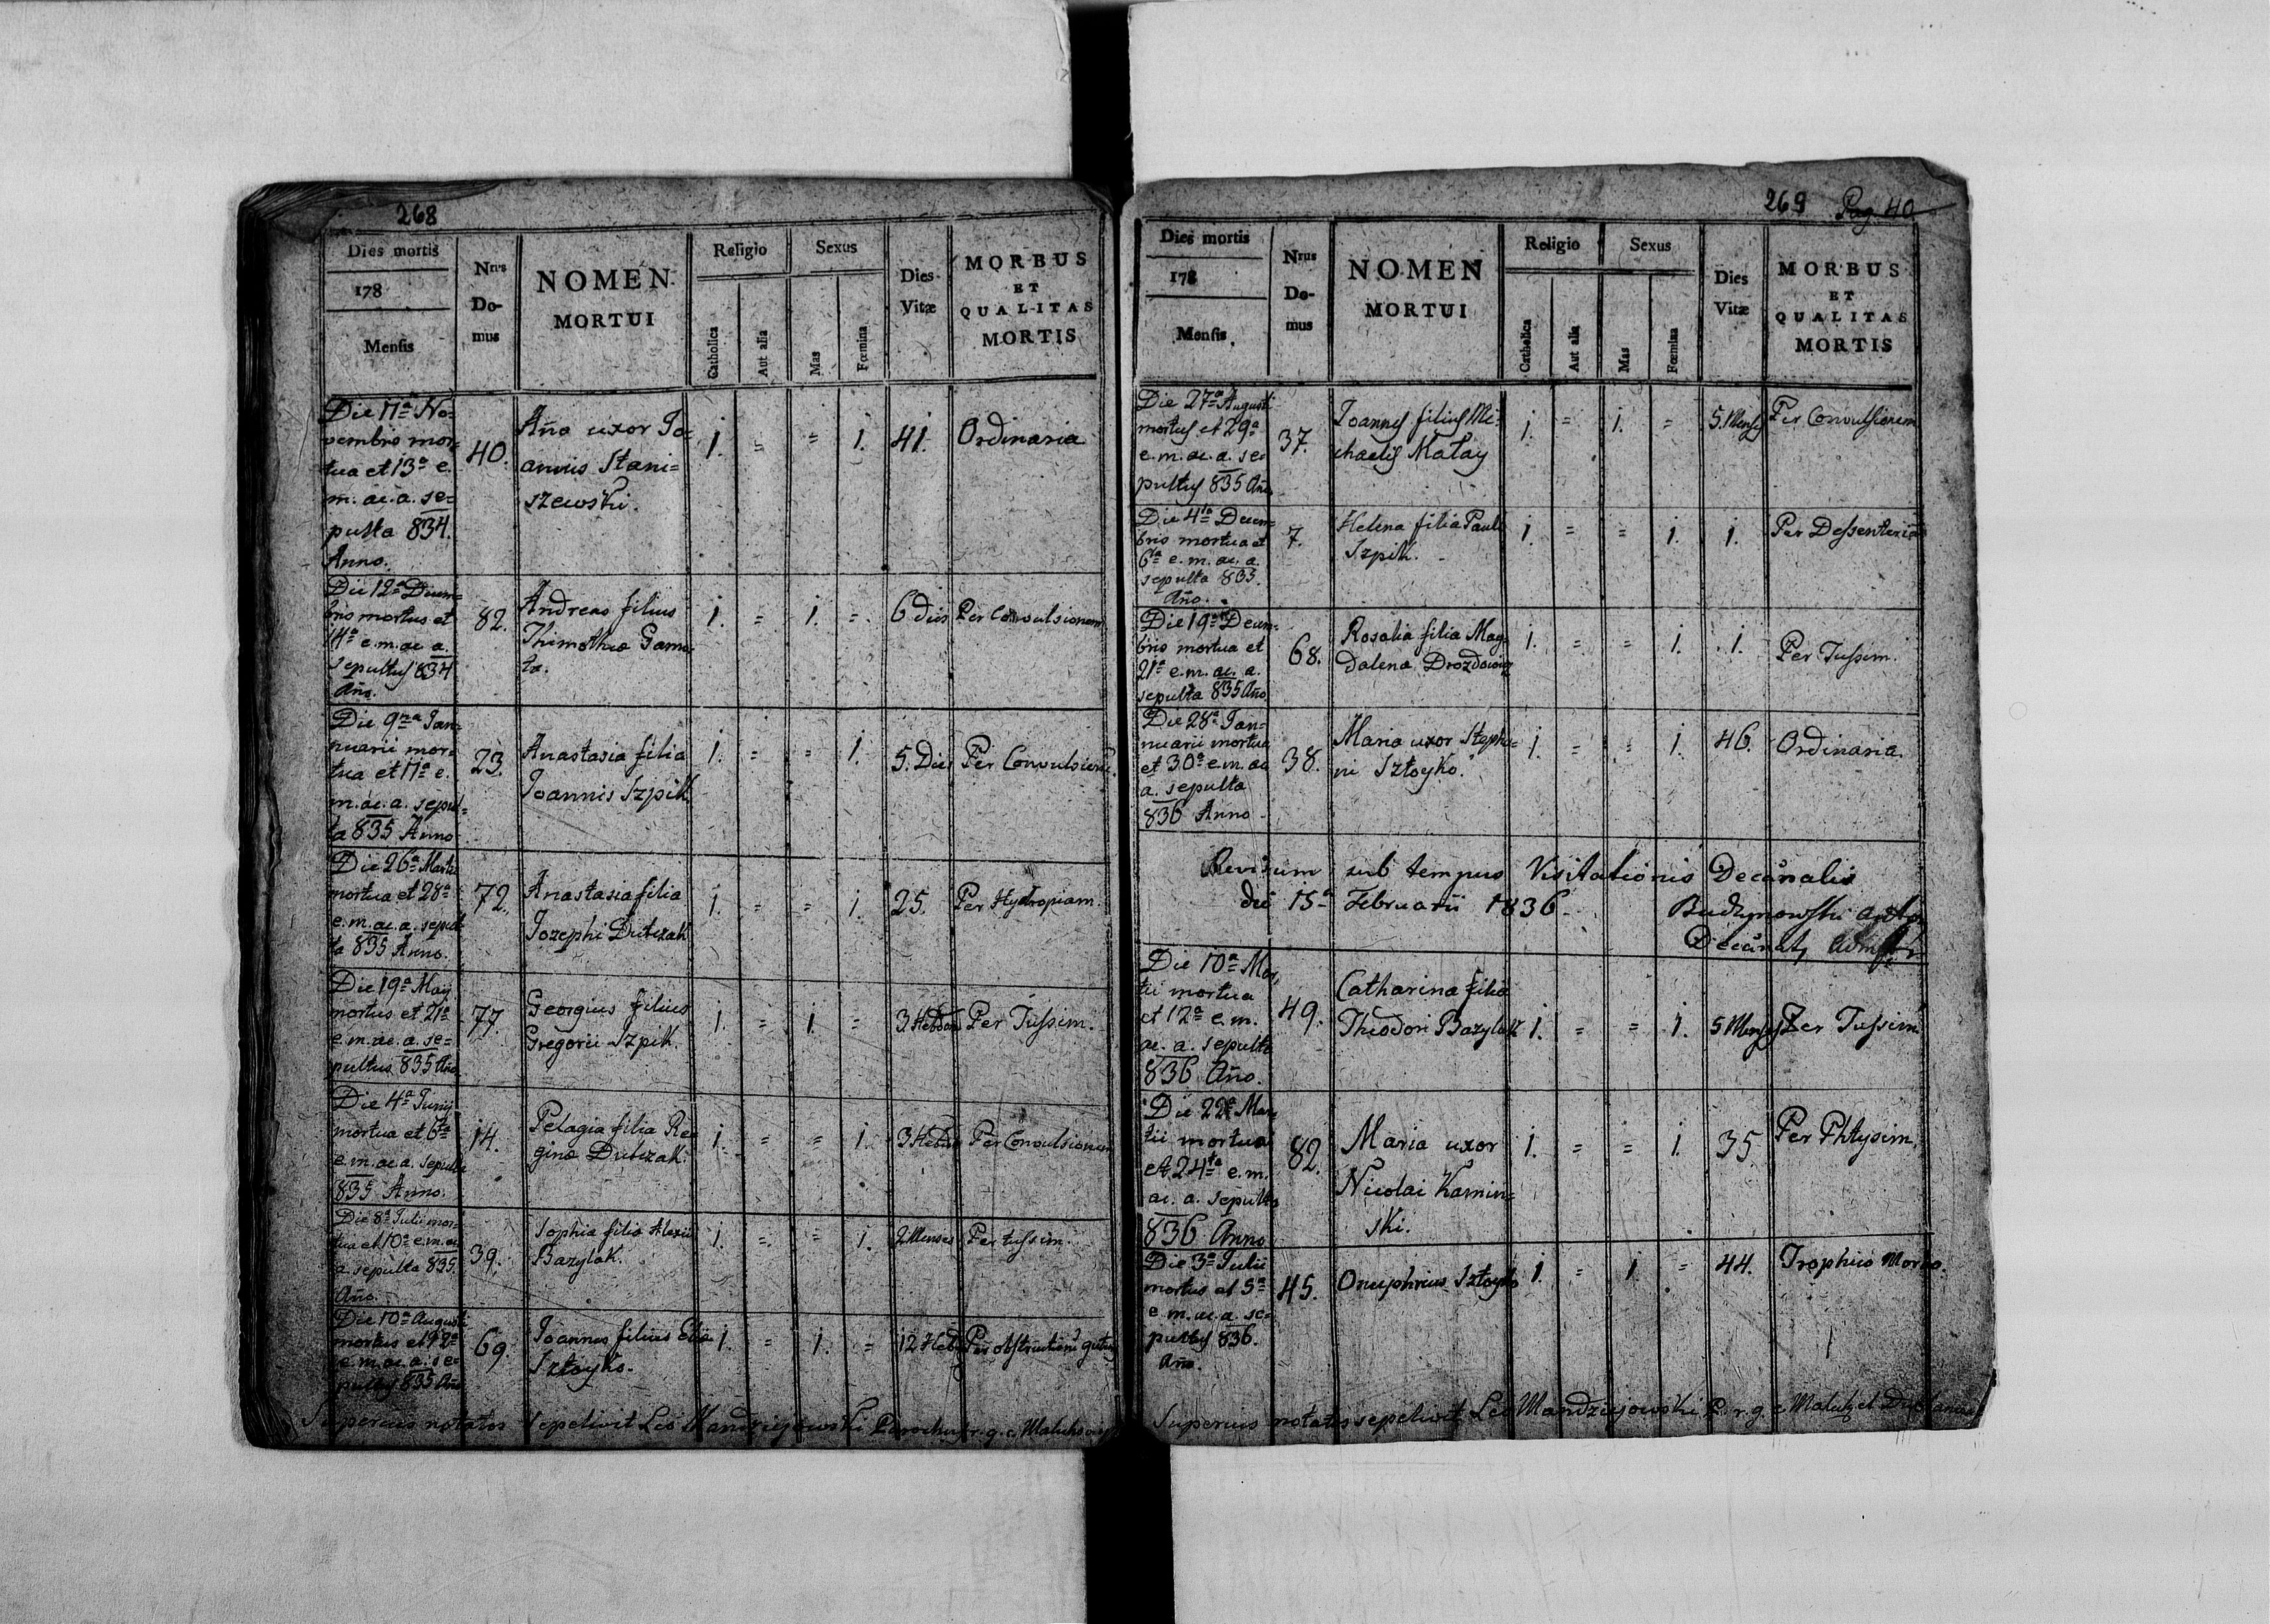 268
Dies mortis
178
Mensis
Nrus
Do-
mus
NOMEN
MORTUI
Religio
Catholica
Aut alia
Sexus
Mas
Fœmina
Dies
Vitæ
MORBUS
ET
QUALITAS
MORTIS
Die 11ª No=
vembris mor=
tua et 13ª e.
m. ac. a. se=
pulta 834.
Anno.
40.
Aña uxor Jo=
annis Stani=
szewski.
1. = = 1.
41.
Ordinaria
Die 12ª Decem=
bris mortus et
14ª e.m. ac a.
sepultus 834
Año.
82.
Andreas filius
Thimothea Gama=
ta.
1. = 1. =
6 dies
Per Convulsionem
Die 9na Jan=
nuarii mor=
tua et 11ª e.
m. ac. a. sepul=
ta 835 Anno
23.
Anastasia filia
Joannis Szpik
1. = = 1.
5. Dies
Per Convulsionē.
Die 26ª Martii
mortua et 28ª
e.m. ac. a. sepul
ta 835 Anno.
72.
Anastasia filia
Jozephi Dubczak
1. = = 1.
25.
Per Hydropiam
Die 19ª May
mortus et 21ª
e.m. ac. a. se=
pultus 835 Año
77.
Georgius filius
Gregorii Szpik.
1. = 1. =
3 Hebdom
Per Tussim.
Die 4ª Junij
mortua et 6ta
e.m. ac. a. sepulta
835 Anno.
14.
Pelagia filia Re=
gina Dubczak.
1. = = 1.
3 Hebdo
Per Convulsionem
Die 8ª Julii mor=
tua et 10ª e.m. ac
a. sepulta 835.
Año.
39.
Sophia filia Alexii
Bazylak.
1. = = 1.
2 Menses
Per tussim.
Die 10ª Augusti
mortus et 12ª
e.m. ac. a. se=
pultus 835 Año
69.
Joannes filius Elia
Sztoyko.
1. = 1. =
12 Hebd
Per obstructionē guturis
Superius notatos sepelivit Leo Mandziejowski Parochus r. g. c. Maluhov
269 Pag. 40
Dies mortis
178
Mensis
Nrus
Do-
mus
NOMEN
MORTUI
Religio
Catholica
Aut alia
Sexus
Mas
Fœmina
Dies
Vitæ
MORBUS
ET
QUALITAS
MORTIS
Die 27ª Augusti
mortus et 29ª
e.m. ac. a. se=
pultus 835 Año
37.
Joannes filius Mi=
chaelis Matay
1. = 1. =
5. Menses
Per Convulsionem
Die 4ta Decem=
bris mortua et
6ta e.m. ac. a.
sepulta 835.
Año.
7.
Helena filia Pauli
Szpik.
1. = = 1.
1.
Per Dessenteria
Die 19ª Decem=
bris mortua et
21ª e.m. ac. a.
sepulta 835 Año
68.
Rosalia filia Mag=
dalena Drozdowicz
1. = = 1.
1.
Per Tussim.
Die 28ª Jan=
nuarii mortua
et 30ª e.m. ac
a. sepulta
836 Anno
38.
Maria uxor Stepha=
ni Sztoyko.
1. = = 1.
46.
Ordinaria
Revisum sub tempus Visitationis Decanalis
die 15ª Februarii 1836.
Die 10ª Mar
tii mortua
et 12ª e.m.
ac. a. sepulta
836 Año.
49.
Catharina filia
Theodori Bazylak
1. = = 1.
5 Menses
Per Tussim
Die 22ª Mar
tii mortua
et 24ta e.m.
ac. a. sepulta
836 Anno
82.
Maria uxor
Nicolai Kamin=
ski.
1. = = 1.
35.
Per Phtysim,
Die 3ª Julii
mortus et 5ª
e.m. ac. a. se=
pultus 836.
Año.
45.
Onuphrius Sztoyko
1. = 1. =
44.
Trophico Morbo.
Superius notatos sepelivit Leo Mandziejowski P. r. g. c Maluh et